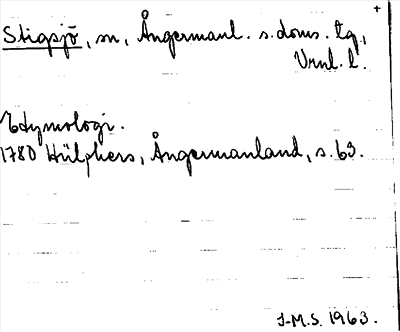 +
Stigsjö, sn, Ångermanl. s. doms. tg,
Vrnl. l.
Etymologi.
1780 Hülphers, Ångermanland, s. 63.
J-M.S. 1963.